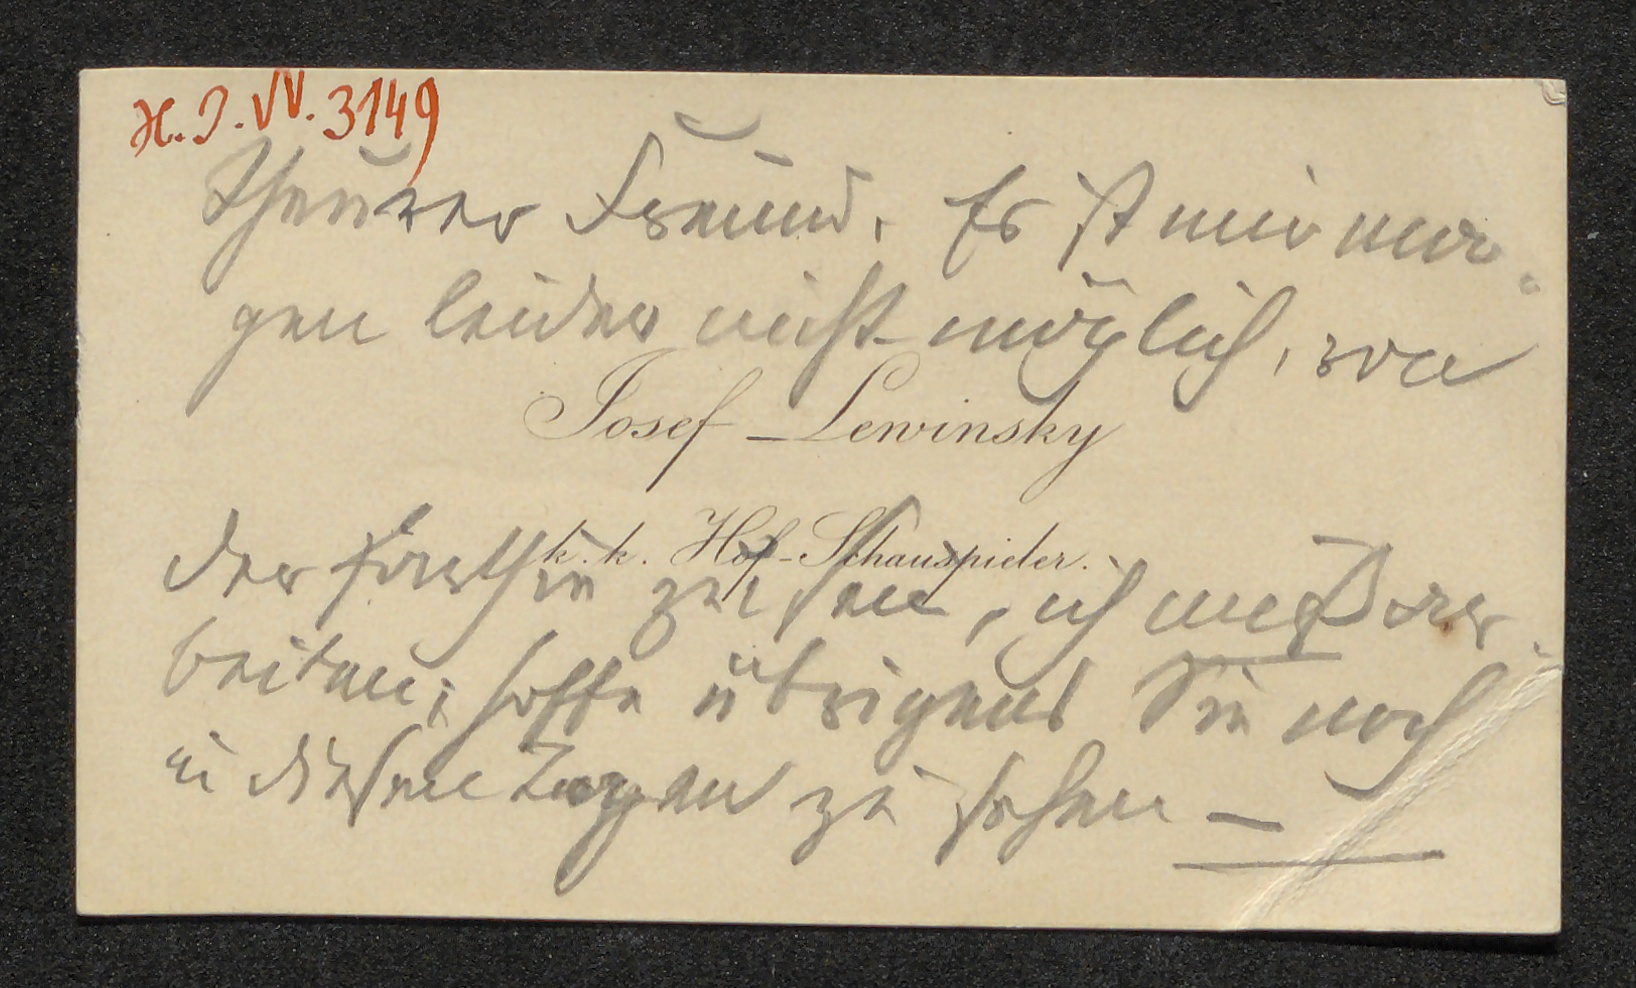 H.I.N. 3149
Theurer Freund. Es ist mir mor-
gen leider nicht möglich, von
Josef Lewinsky
k. k. Hof-Schauspieler.
der Parthie zu sein, ich muß ar-
beiten; hoffe übrigens Sie noch
in diesen Tagen zu sehen —